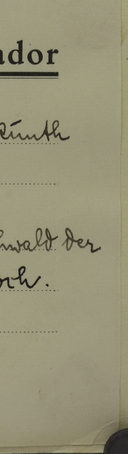 ador
Kunth
nwald der
och.